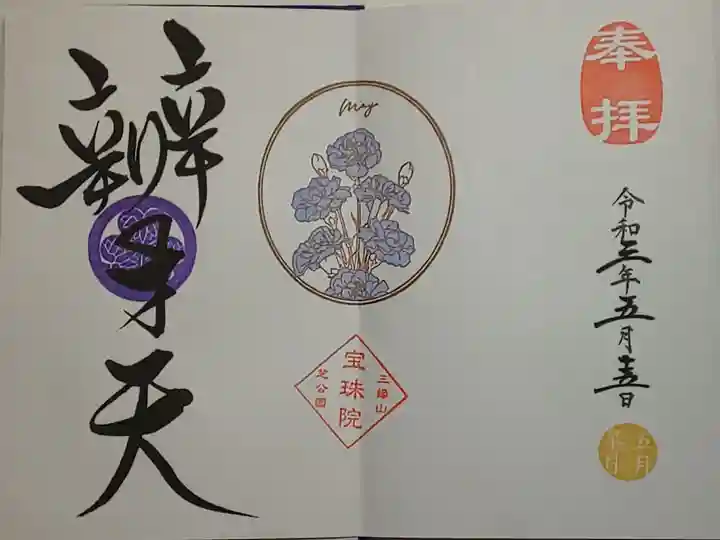 奉拝
令和三年五月十五日
五月
May
三縁山
宝珠院
芝公園
辨才天